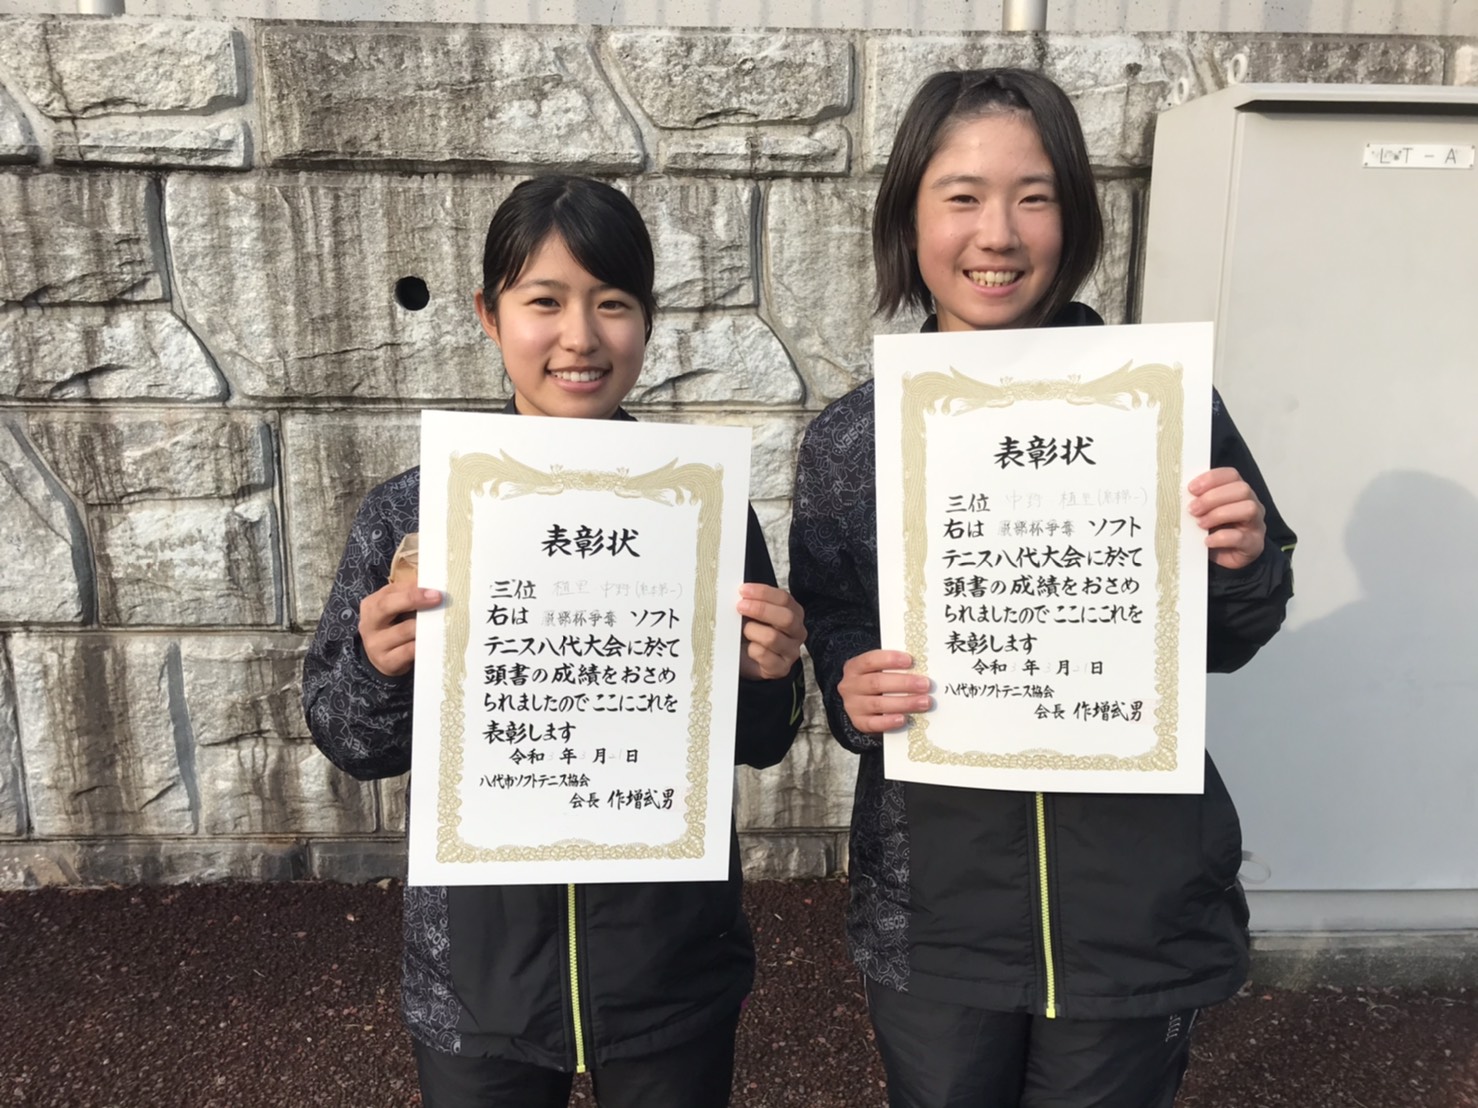 表彰状
三位 植里 中野(熊本第一)
右は 服部杯争奪 ソフト
テニス八代大会に於て
頭書の成績をおさめ
られましたのでここにこれを
表彰します
令和3年3月21日
八代市ソフトテニス協会
会長 作増武男
表彰状
三位 中野 植里(熊本第一)
右は 服部杯争奪 ソフト
テニス八代大会に於て
頭書の成績をおさめ
られましたのでここにこれを
表彰します
令和3年3月21日
八代市ソフトテニス協会
会長 作増武男
GOSEN